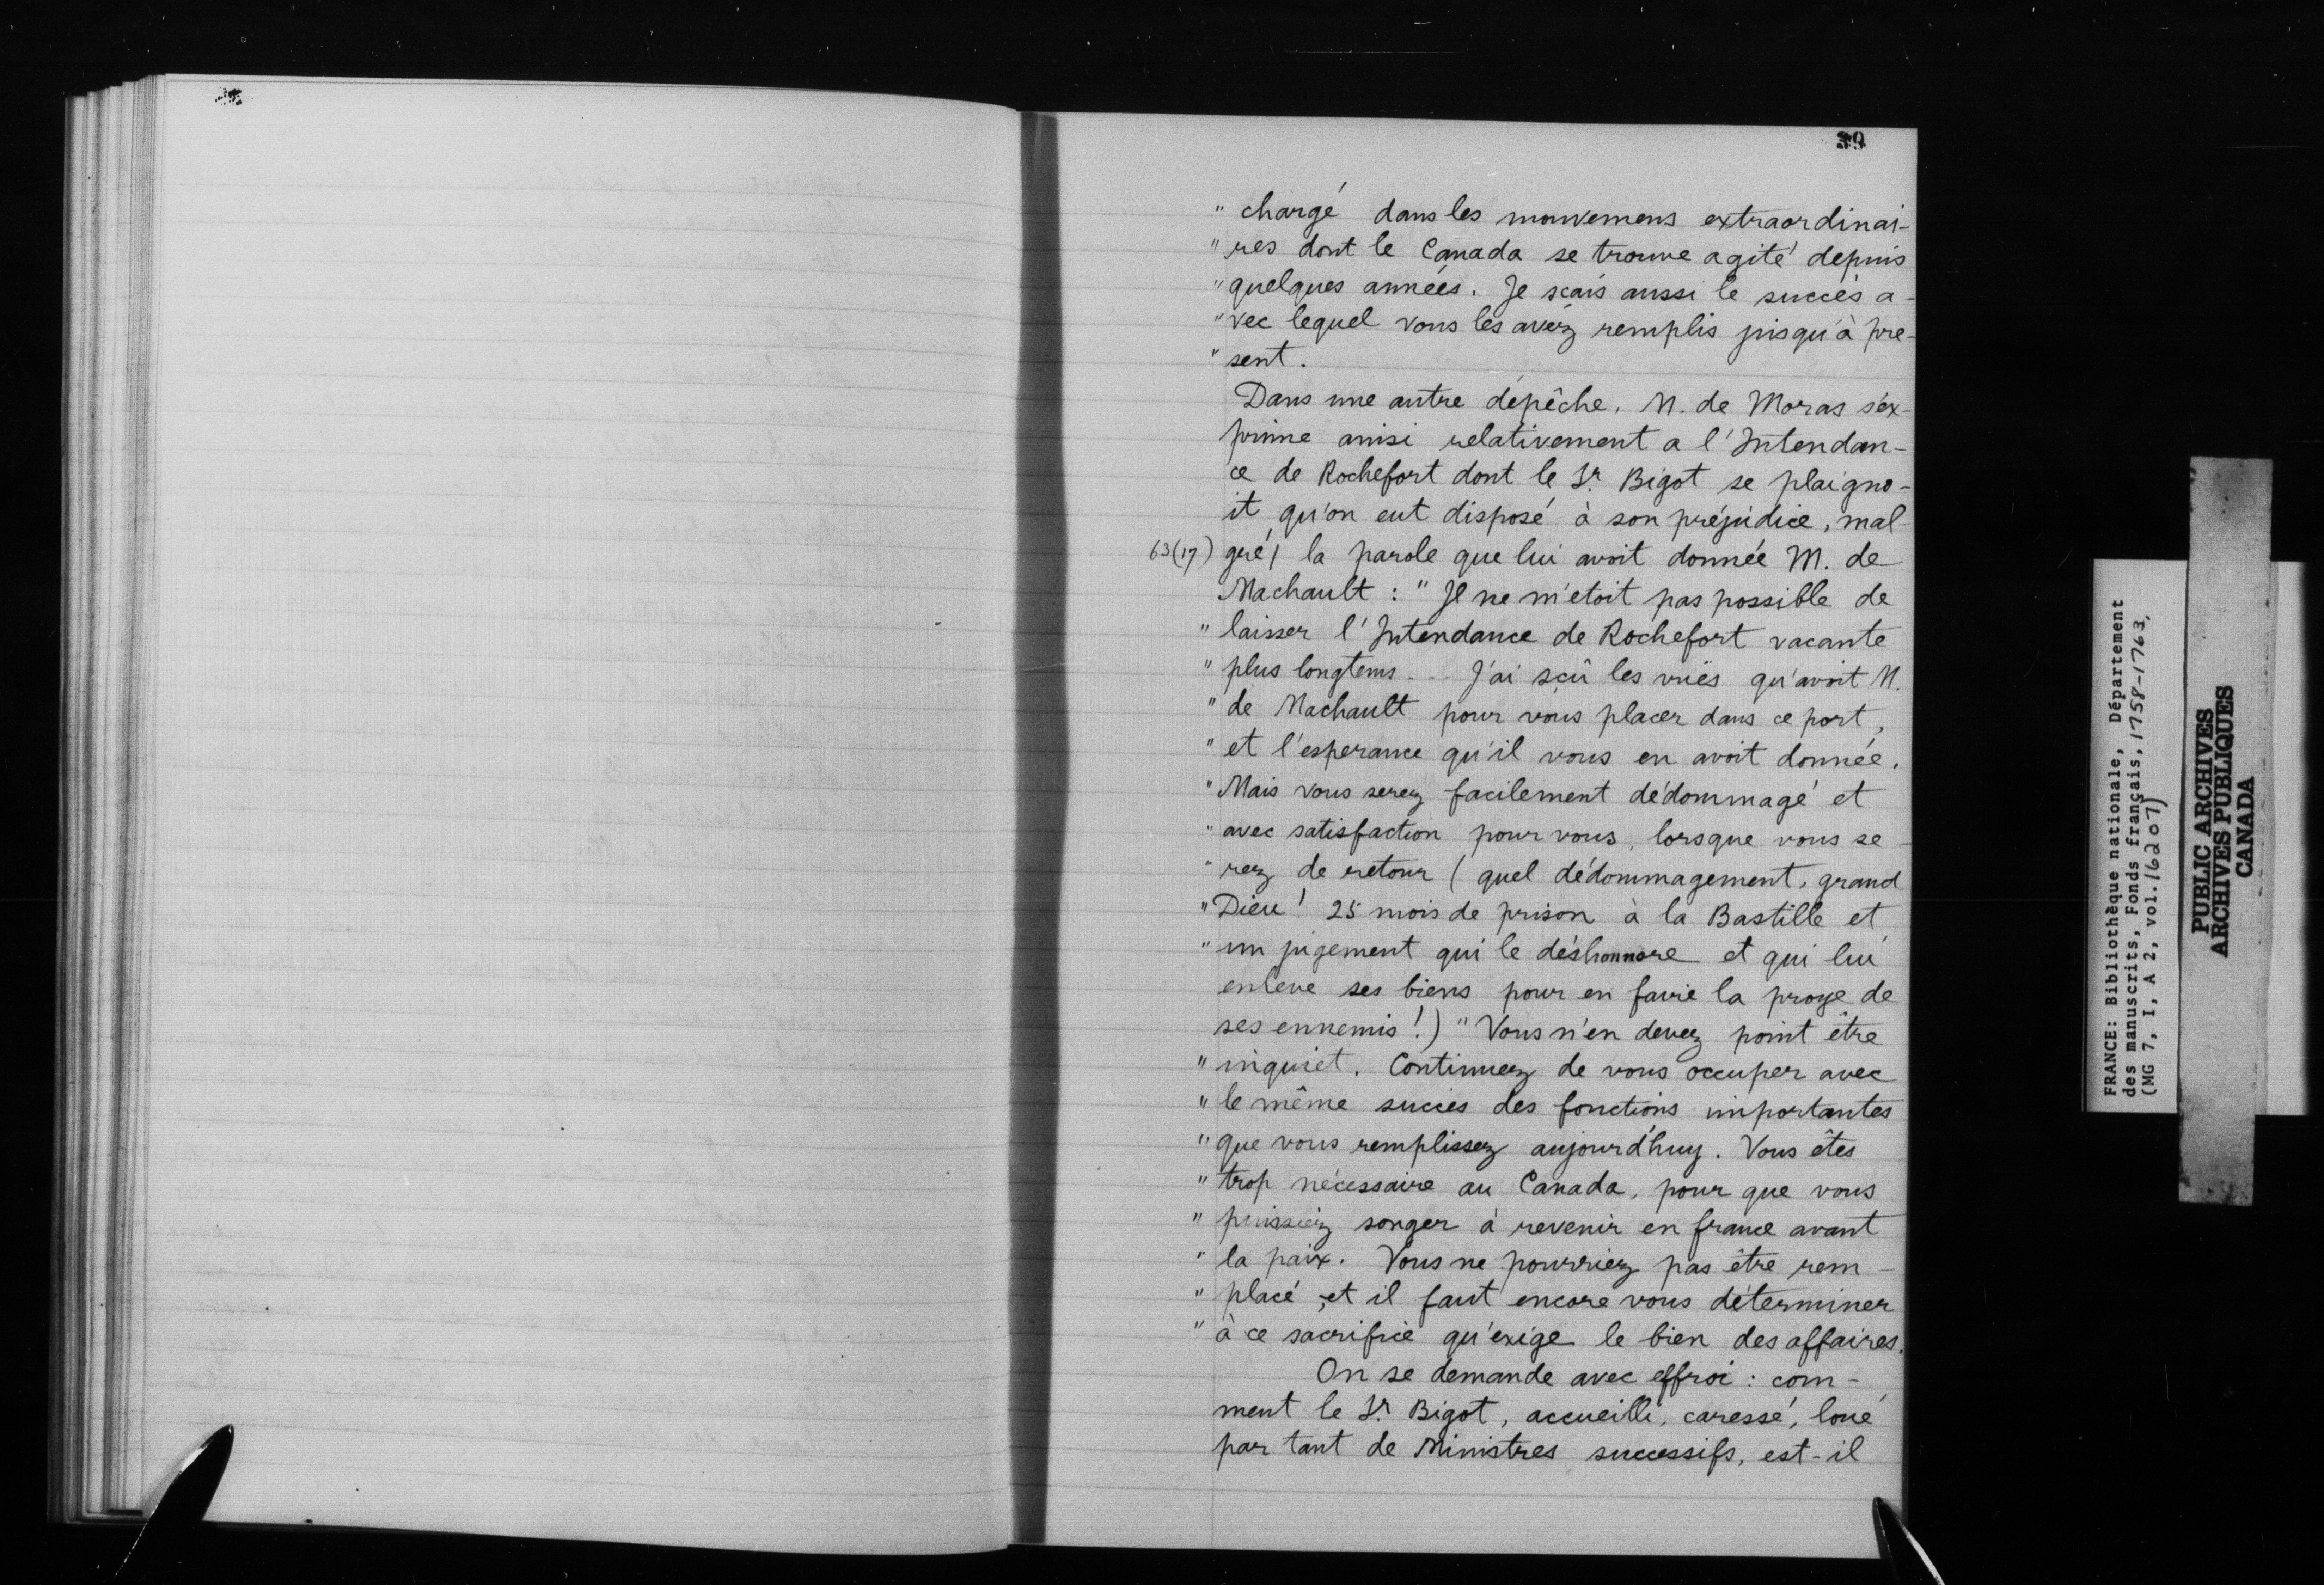 39
" chargé dans les mouvemens extraordinai-
" res dont le Canada se trouve agité depuis
" quelques années. Je sçais aussi le succès a-
" vec lequel vous les avéz remplis jusqu'à pre-
" sent.
Dans une autre dépêche, M. de Moras s'ex-
prime ainsi relativement a l'Intendan-
ce de Rochefort dont le Sr. Bigot se plaigno-
it qu'on eut disposé à son préjudice, mal-
63(17) gré/ la parole que lui avoit donnée M. de
Machault : " Il ne m'etoit pas possible de
" laisser l'Intendance de Rochefort vacante
" plus longtems ... J'ai sçû les vuës qu'avoit M.
" de Machault pour vous placer dans ce port,
" et l'esperance qu'il vous en avoit donnée.
" Mais vous serez facilement dédommagé et
" avec satisfaction pour vous, lorsque vous se-
" rez de retour ( quel dédommagement, grand
" Dieu ! 25 mois de prison à la Bastille et
" un jugement qui le déshonnore et qui lui
enleve ses biens pour en faire la proye de
ses ennemis !) " Vous n'en devez point être
" inquiet. Continuez de vous occuper avec
" le même succès des fonctions importantes
" que vous remplissez aujourd'huy. Vous êtes
" trop nécessaire au Canada, pour que vous
" puissiéz songer à revenir en france avant
" la paix. Vous ne pourriez pas être rem-
" placé, et il faut encore vous déterminer
" à ce sacrifice qu'exige le bien des affaires.
On se demande avec effroi : com-
ment le Sr. Bigot, accueilli, caressé, loué
par tant de Ministres successifs, est-il
FRANCE: Bibliothèque nationale, Département
des manuscrits, Fonds français, 1758-1763,
(MG 7, I, A 2, vol. 16207)
PUBLIC ARCHIVES
ARCHIVES PUBLIQUES
CANADA